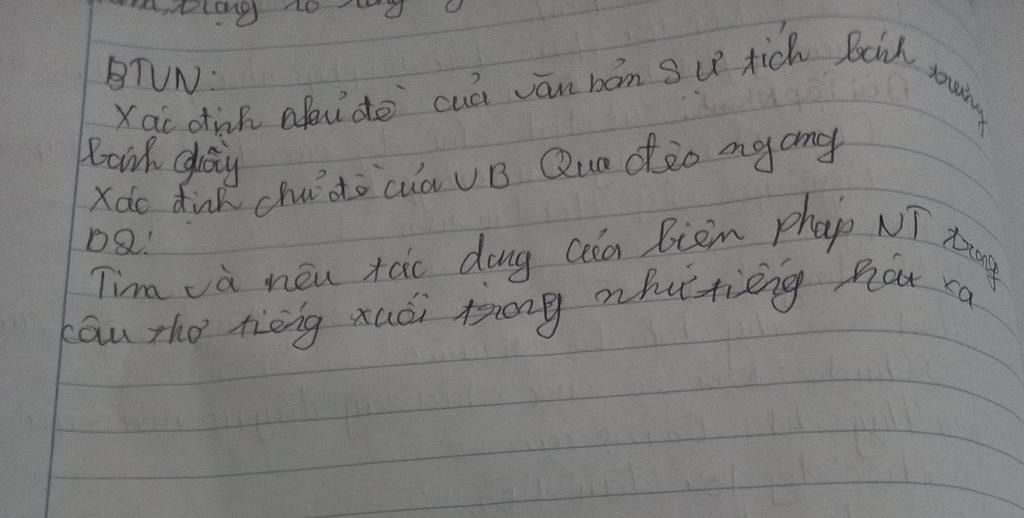 BTVN:
Xác định chủ đề của văn bản Sự tích bánh trưng
bánh giầy
Xác định chủ đề của VB Qua đèo ngang
D2:
Tìm và nêu tác dụng của biện pháp NT trong
câu thơ tiếng xuối trong như tiếng hát xa